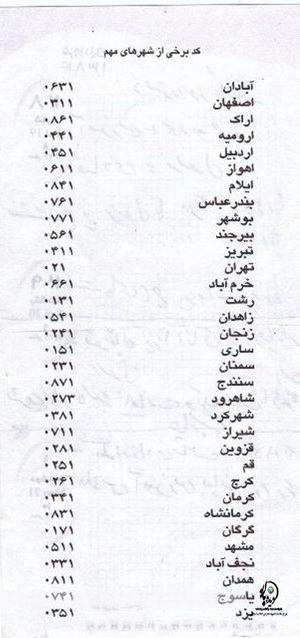 کد برخی از شهرهای مهم
آبادان ۰۶۳۱
اصفهان ۰۳۱۱
اراک ۰۸۶۱
ارومیه ۰۴۴۱
اردبیل ۰۴۵۱
اهواز ۰۶۱۱
ایلام ۰۸۴۱
بندرعباس ۰۷۶۱
بوشهر ۰۷۷۱
بیرجند ۰۵۶۱
تبریز ۰۴۱۱
تهران ۰۲۱
خرم آباد ۰۶۶۱
رشت ۰۱۳۱
زاهدان ۰۵۴۱
زنجان ۰۲۴۱
ساری ۰۱۵۱
سمنان ۰۲۳۱
سنندج ۰۸۷۱
شاهرود ۰۲۷۳
شهرکرد ۰۳۸۱
شیراز ۰۷۱۱
قزوین ۰۲۸۱
قم ۰۲۵۱
کرج ۰۲۶۱
کرمان ۰۳۴۱
کرمانشاه ۰۸۳۱
گرگان ۰۱۷۱
مشهد ۰۵۱۱
نجف آباد ۰۳۳۱
همدان ۰۸۱۱
یاسوج ۰۷۴۱
یزد ۰۳۵۱